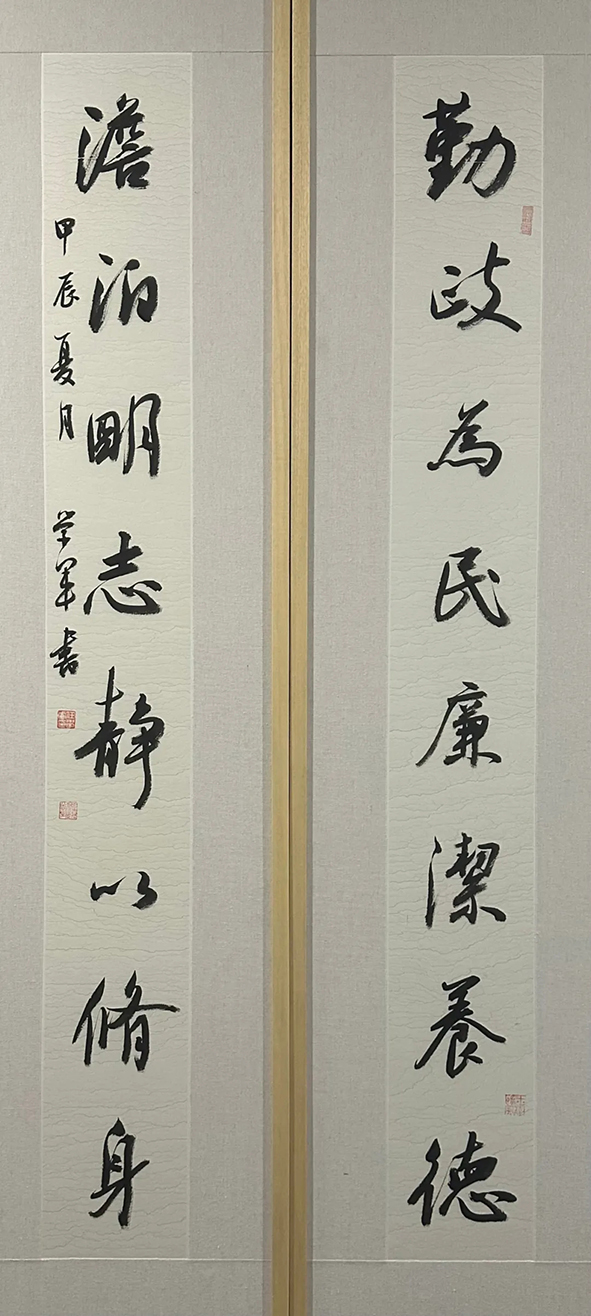 勤政為民廉潔養德
澹泊明志靜以脩身
甲辰夏月 学军書